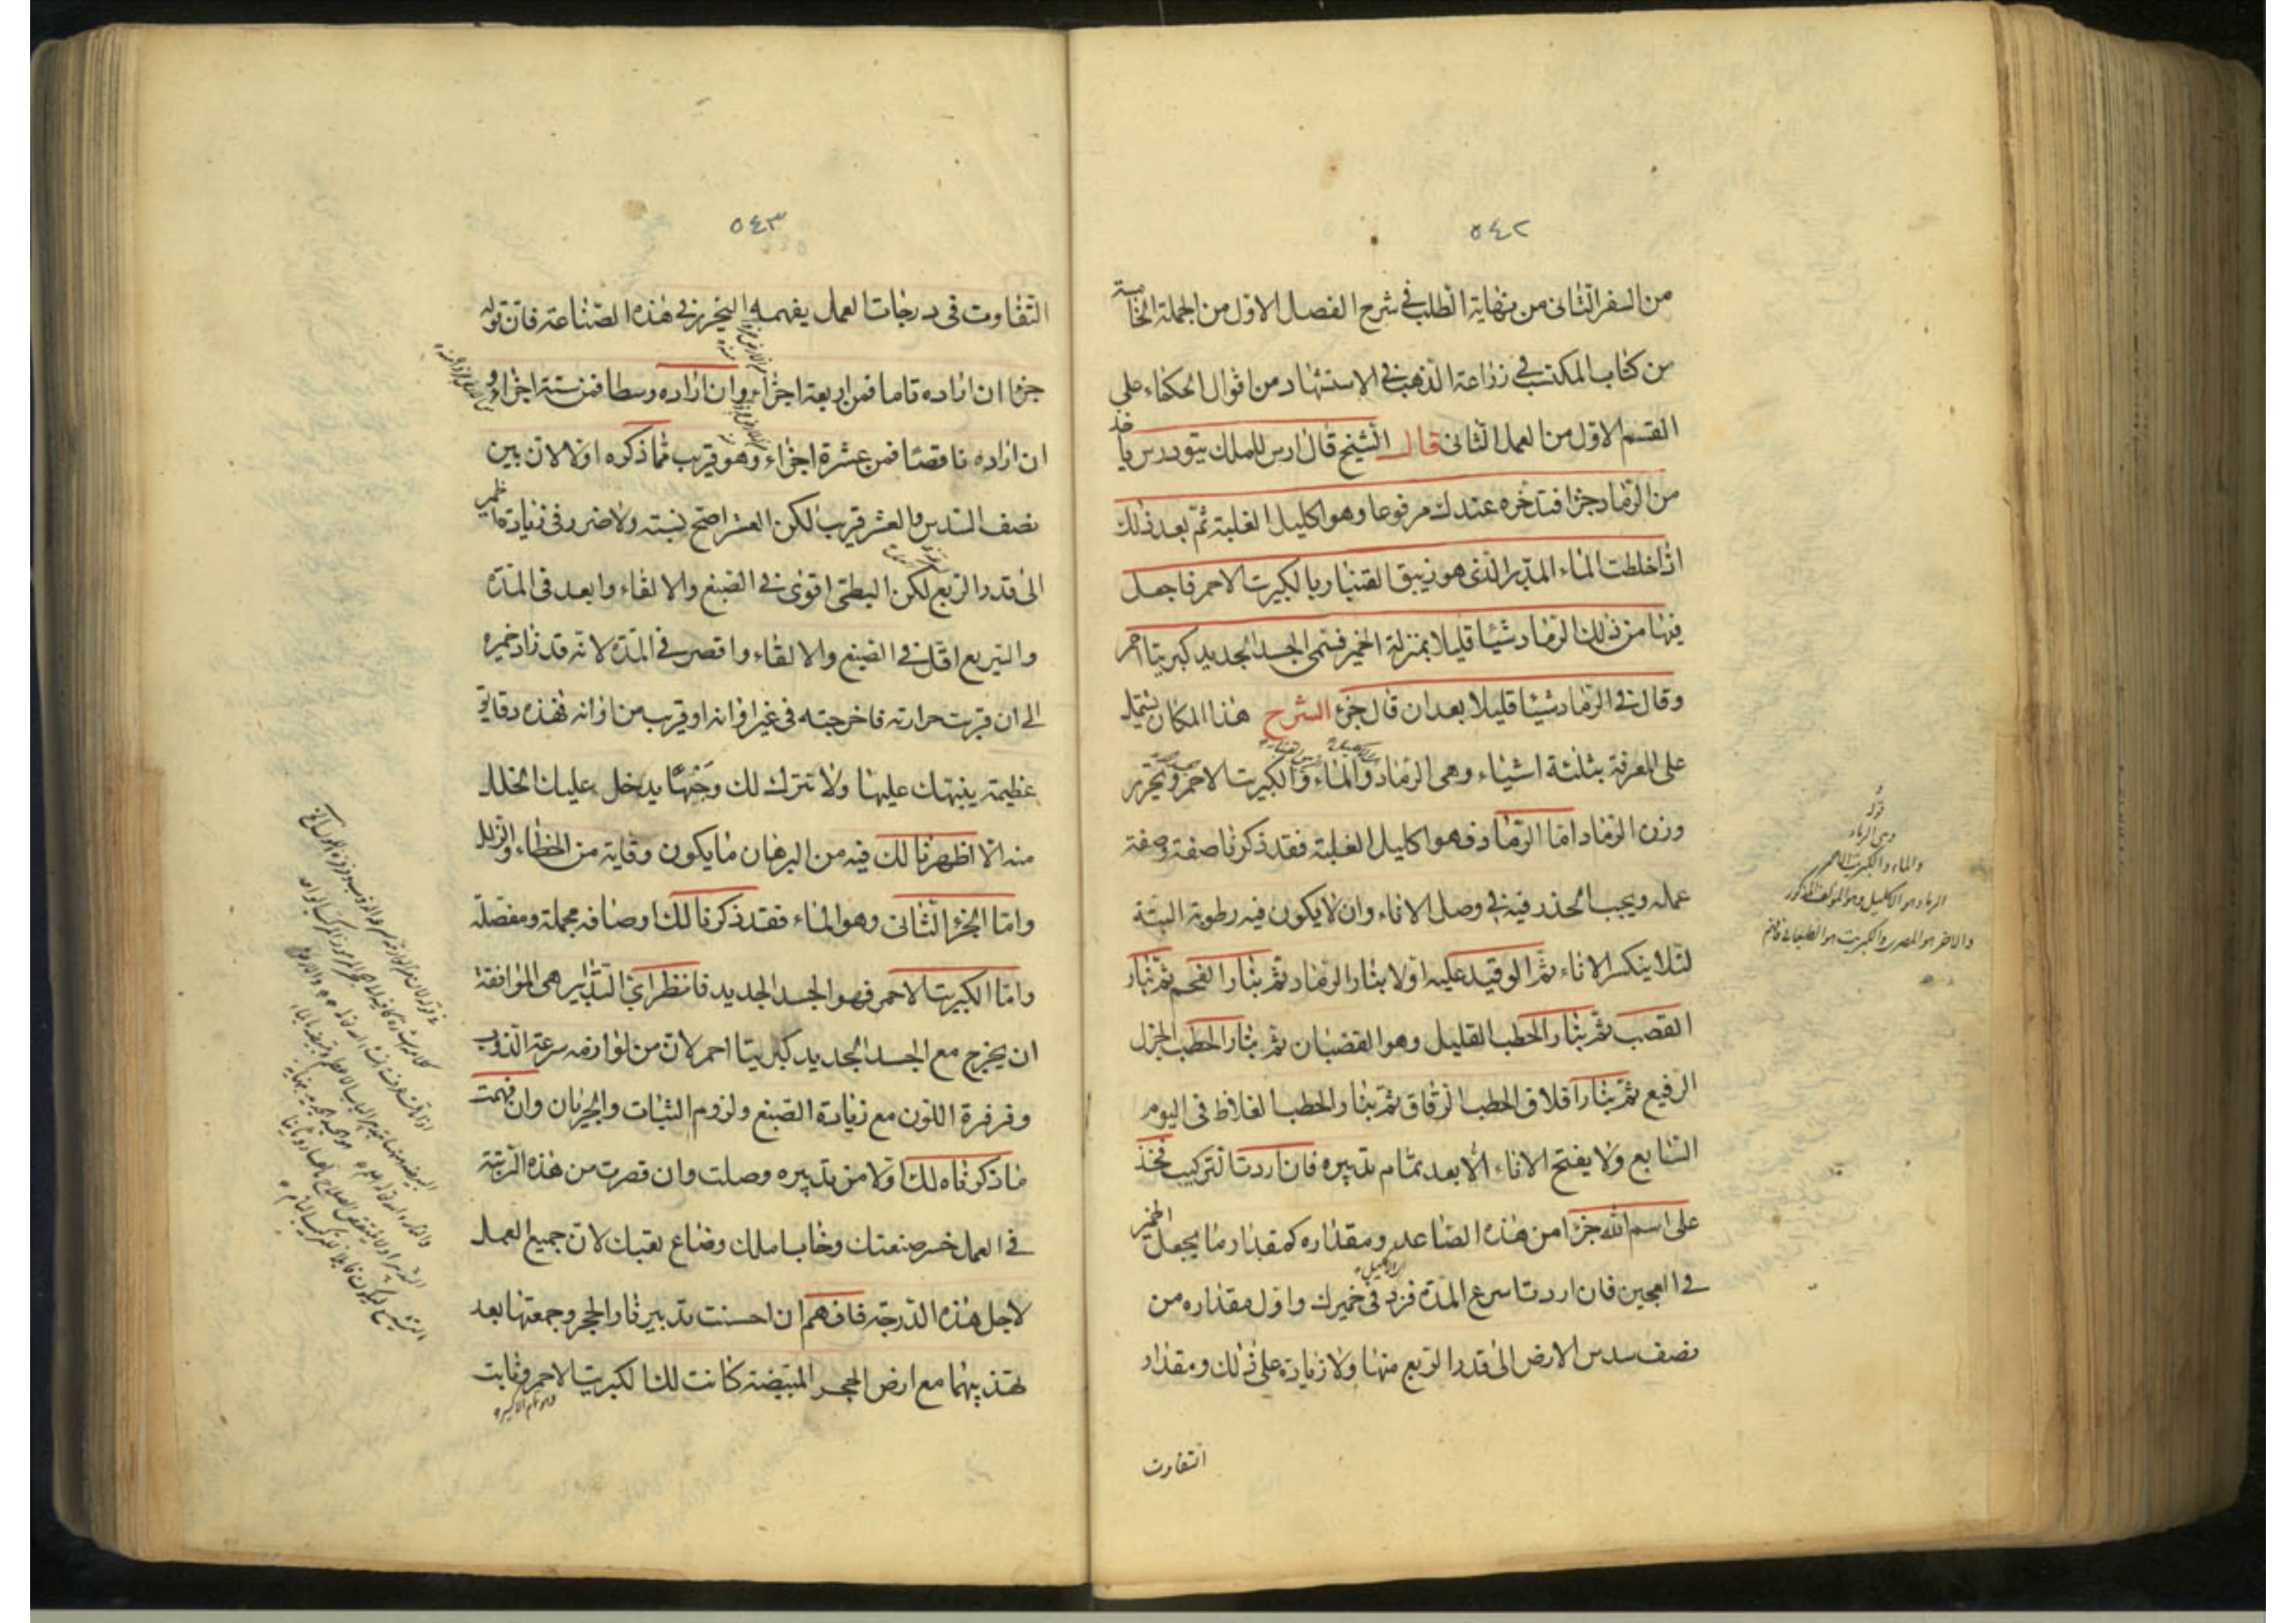 ٥٤٢
من السفر الثاني من نهاية الطلب في شرح الفصل الاول من الجملة الخامسة
من كتاب المكتسب في زراعة الذهب في الاستشهاد من اقوال الحكماء على
القسم الاول من العمل الثاني قال الشيخ قال ارس للملك تيودرس يا خذ
من الرماد جزا فتدخره عندك مرفوعا وهو اكليل الغلبة ثم بعد ذلك
اذا خلطت الماء المدبر الذي هو زيبق القنبار بالكبريت الاحمر فاجعل
فيها من ذلك الرماد شيئا قليلا بمنزلة الخمير فسمى الجسد الجديد كبريتا احمر
وقال في الرماد شيئا قليلا بعد ان قال جزء الشرح هذا المكان يشتمل
على المعرفة بثلثة اشياء وهى الرماد والماء والكبريت الاحمر وتحرير
وزن الرماد اما الرماد فهو اكليل الغلبة فقد ذكرنا صفته وصفة
عمله ويجب الحذر فيه في وصل الاناء وان لا يكون فيه رطوبة البتة
لئلا ينكسر الاناء ثم الوقيد عليه اولا بنار الرماد ثم بنار الفحم ثم بنار
القصب ثم بنار الحطب القليل وهو القضبان ثم بنار الحطب الجزل
الرفيع ثم بنار افلاق الحطب الرقاق ثم بنار الحطب الغلاظ في اليوم
السابع ولا يفتح الاناء الا بعد تمام تدبيره فان اردت التركيب فخذ
على اسم الله جزا من هذه الصاعد ومقداره كمقدار ما يجعل الخمير
في العجين فان اردت اسرع المدة فزد في خميرك واول مقداره من
نصف سدس الارض الى قدر الربع منها ولا زيادة على ذلك ومقدار
التفاوت
قوله
وهى الرماد
والماء والكبريت الاحمر
الرماد هو الاكليل وهو المذكور
٥٤٣
التفاوت في درجات العمل يفهمه النحرير في هذه الصناعة فان قوله
جزا ان اراده تاما فمن اربعة اجزاء وان اراده وسطا فمن ستة اجزاء و
ان اراده ناقصا فمن عشرة اجزاء وهو قريب مما ذكره اولا لان بين
نصف السدس والعشر قريب لكن العشر اصح نسبته ولا ضرر في زيادة خمير
الى قدر الربع لكن البطى اقوى في الصبغ والالقاء وابعد في المدة
والسريع اقل في الصبغ والالقاء واقصر في المدة لانه قد زاد خميره
الى ان قربت حرارته فاخرجته في غير اوانه او قريب من اوانه فهذه دقايق
عظيمة ينبهك عليها ولا تترك لك وجها يدخل عليك الخلل
منه الا اظهرنا لك فيه من البرهان ما يكون وقاية من الخطاء والزلل
واما الجزء الثاني وهو الماء فقد ذكرنا لك اوصافه مجملة ومفصلة
واما الكبريت الاحمر فهو الجسد الجديد فانظر اي التدابير هى الموافقة
ان يخرج مع الجسد الجديد كبريتا احمر لان من لوازمه سرعة الذوب
وفرفرة اللون مع زيادة الصبغ ولزوم الثبات والجريان وان فهمت
ما ذكرناه لك اولا من تدبيره وصلت وان قصرت من هذه الرتبة
في العمل خسر صنعتك وخاب املك وضاع تعبك لان جميع العمل
لاجل هذه الدرجة فافهم ان احسنت تدبير نار الحجر وجمعتها بعد
تهذيبهما مع ارض الحجر المبيضة كانت لك الكبريت الاحمر ونابت